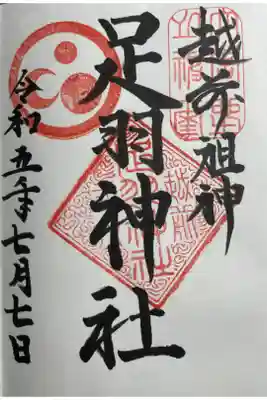 越前祖神
足羽神社
令和五年七月七日